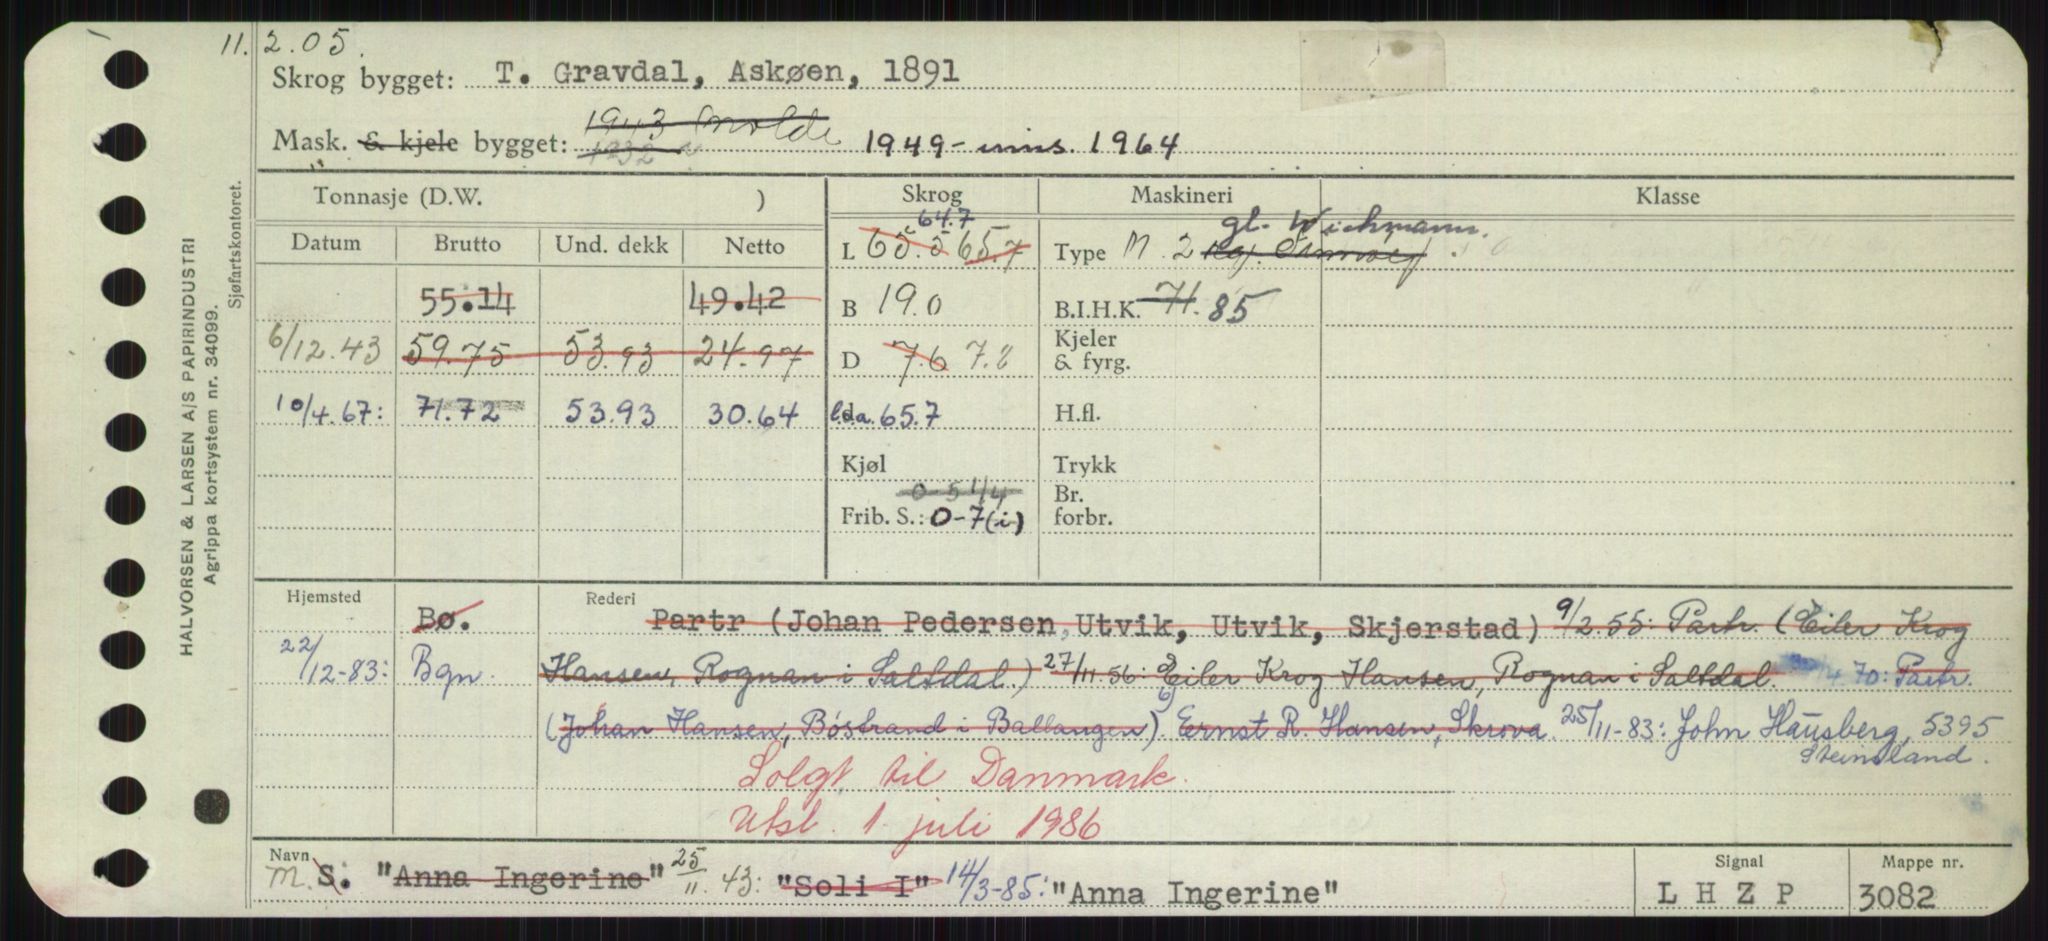 11. 2.05.
Skrog bygget: T. Gravdal, Askøen, 1891
1943 Molde
Mask. & kjele bygget: 1932 1949 - inns. 1964
Tonnasje (D.W. ) Skrog Maskineri Klasse
Datum Brutto Und. dekk Netto
64.7
L 65.5 65.7
gl. Wichmann.
Type M. 2
55.14 49.42
B 19.0
B.I.H.K. 71. 85
6/12.43 59.75 53.93 24.97
D 7.6 7.8
Kjeler
& fyrg.
10/4.67: 71.72 53.93 30.64
l.o.a. 65.7
H.fl.
Kjøl
Trykk
0 5 1/4
Br.
Frib. S.: 0-7(i)
forbr.
Hjemsted Rederi
Bø. Partr (Johan Pedersen, Utvik, Utvik, Skjerstad) 9/2.55: Partr. (Eiler Krog
22/12-83: Bgn. Hansen, Rognan i Saltdal.) 27/11.56: Eiler Krog Hansen, Rognan i Saltdal. /4 70: Partr.
(Johan Hansen, Bøstrand i Ballangen). Ernst R. Hansen, Skrova. 25/11-83: John Hausberg, 5395
Steinsland.
Solgt til Danmark.
Utsl. 1. juli 1986
Navn
M. S. "Anna Ingerine" 25/11. 43: "Soli I" 14/3-85: "Anna Ingerine"
Signal
L H Z P
Mappe nr.
3082
HALVORSEN & LARSEN A/S PAPIRINDUSTRI
Agrippa kortsystem nr. 34099.
Sjøfartskontoret.